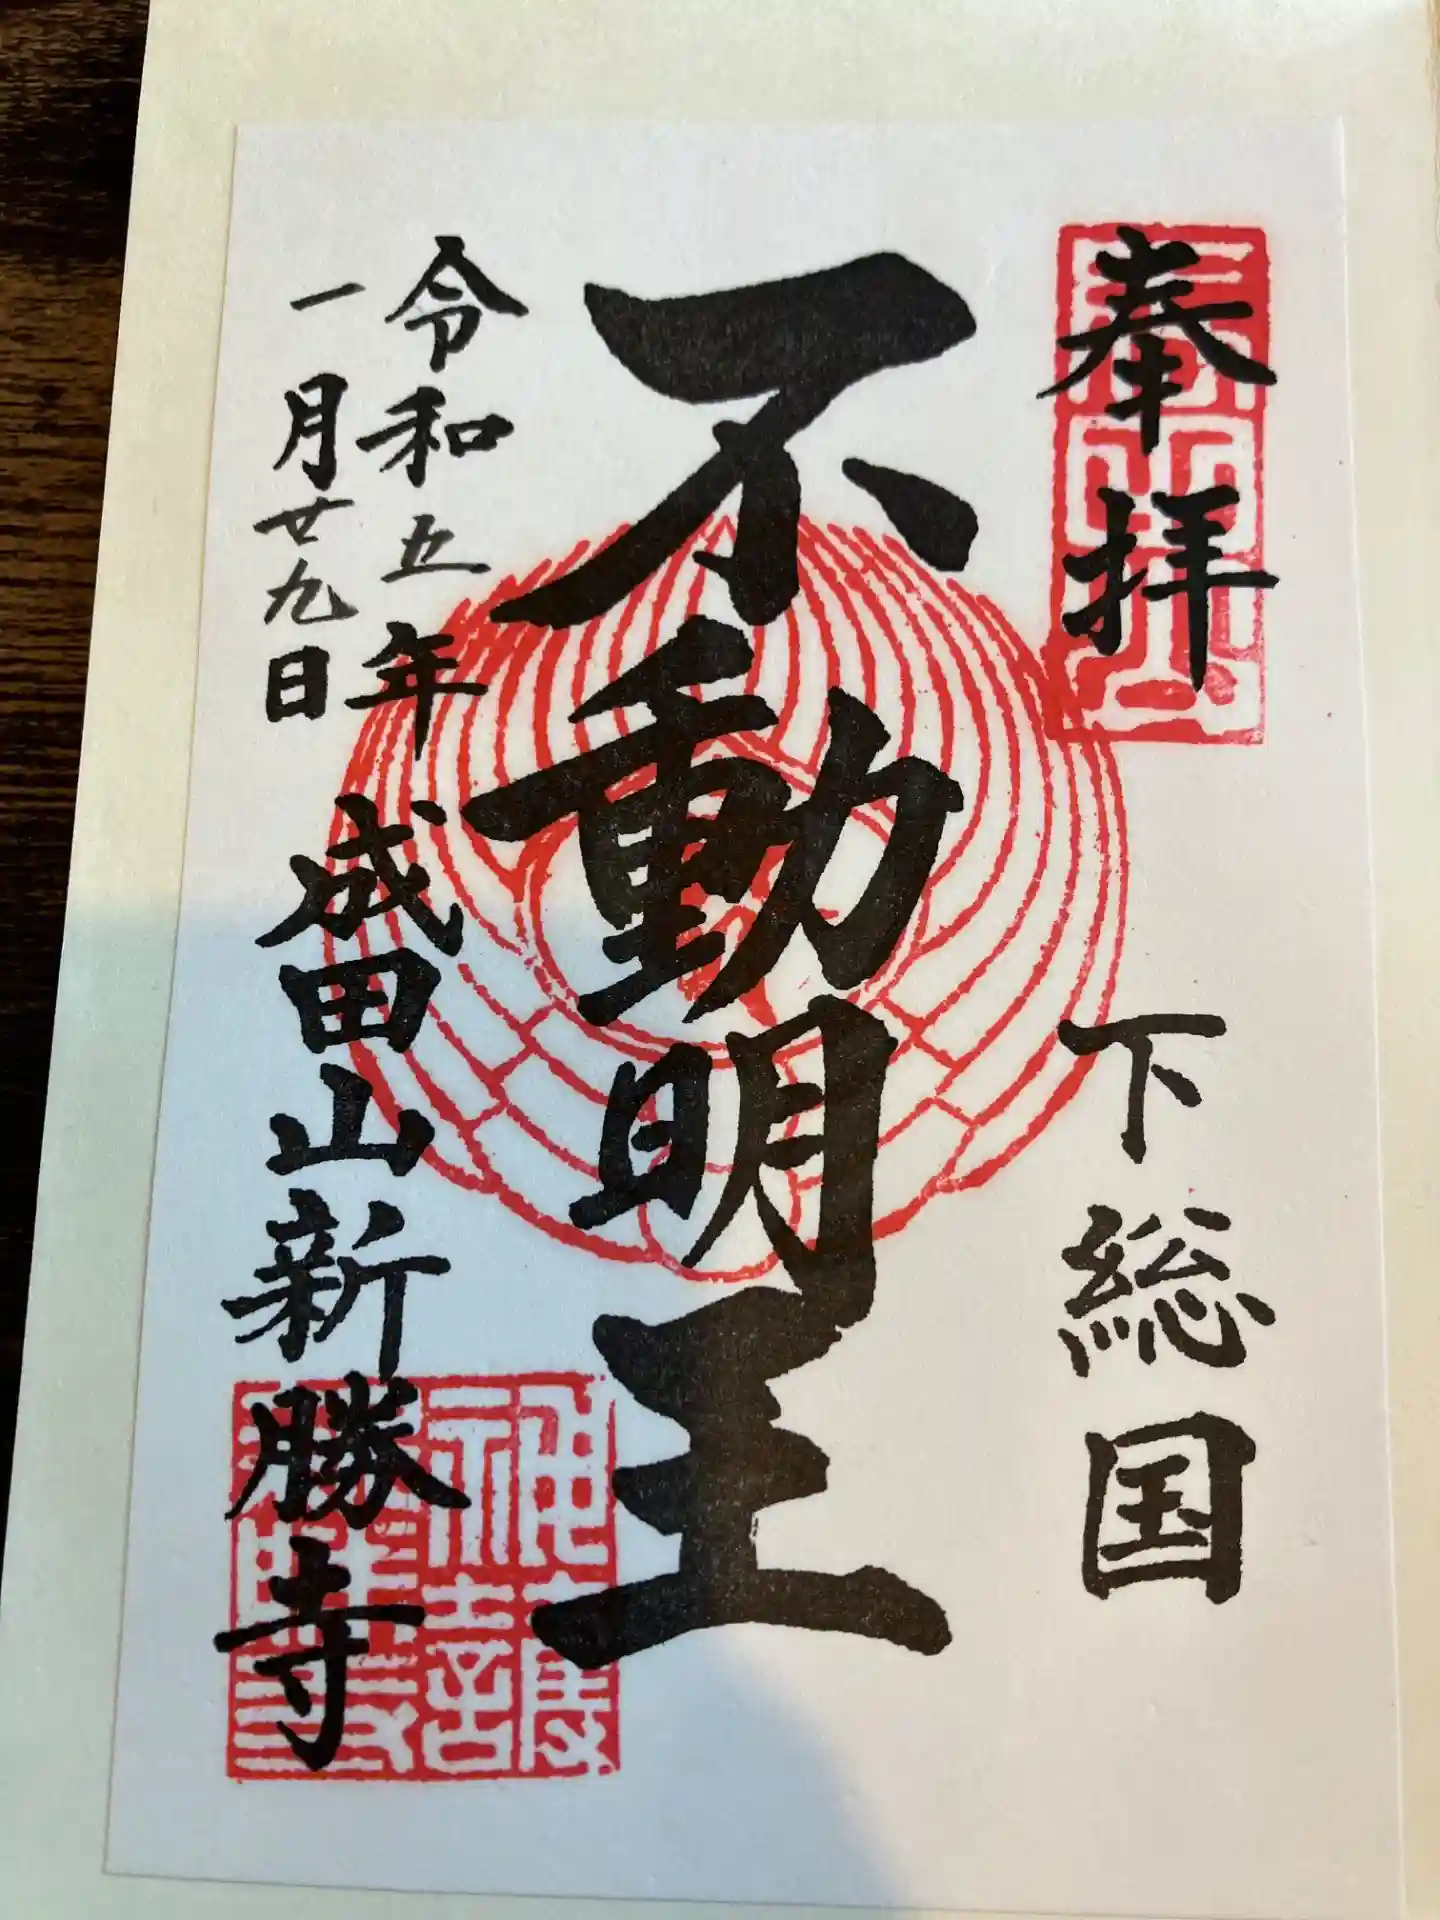 奉拝
下総国
不動明王
令和五年
一月廿九日
成田山新勝寺